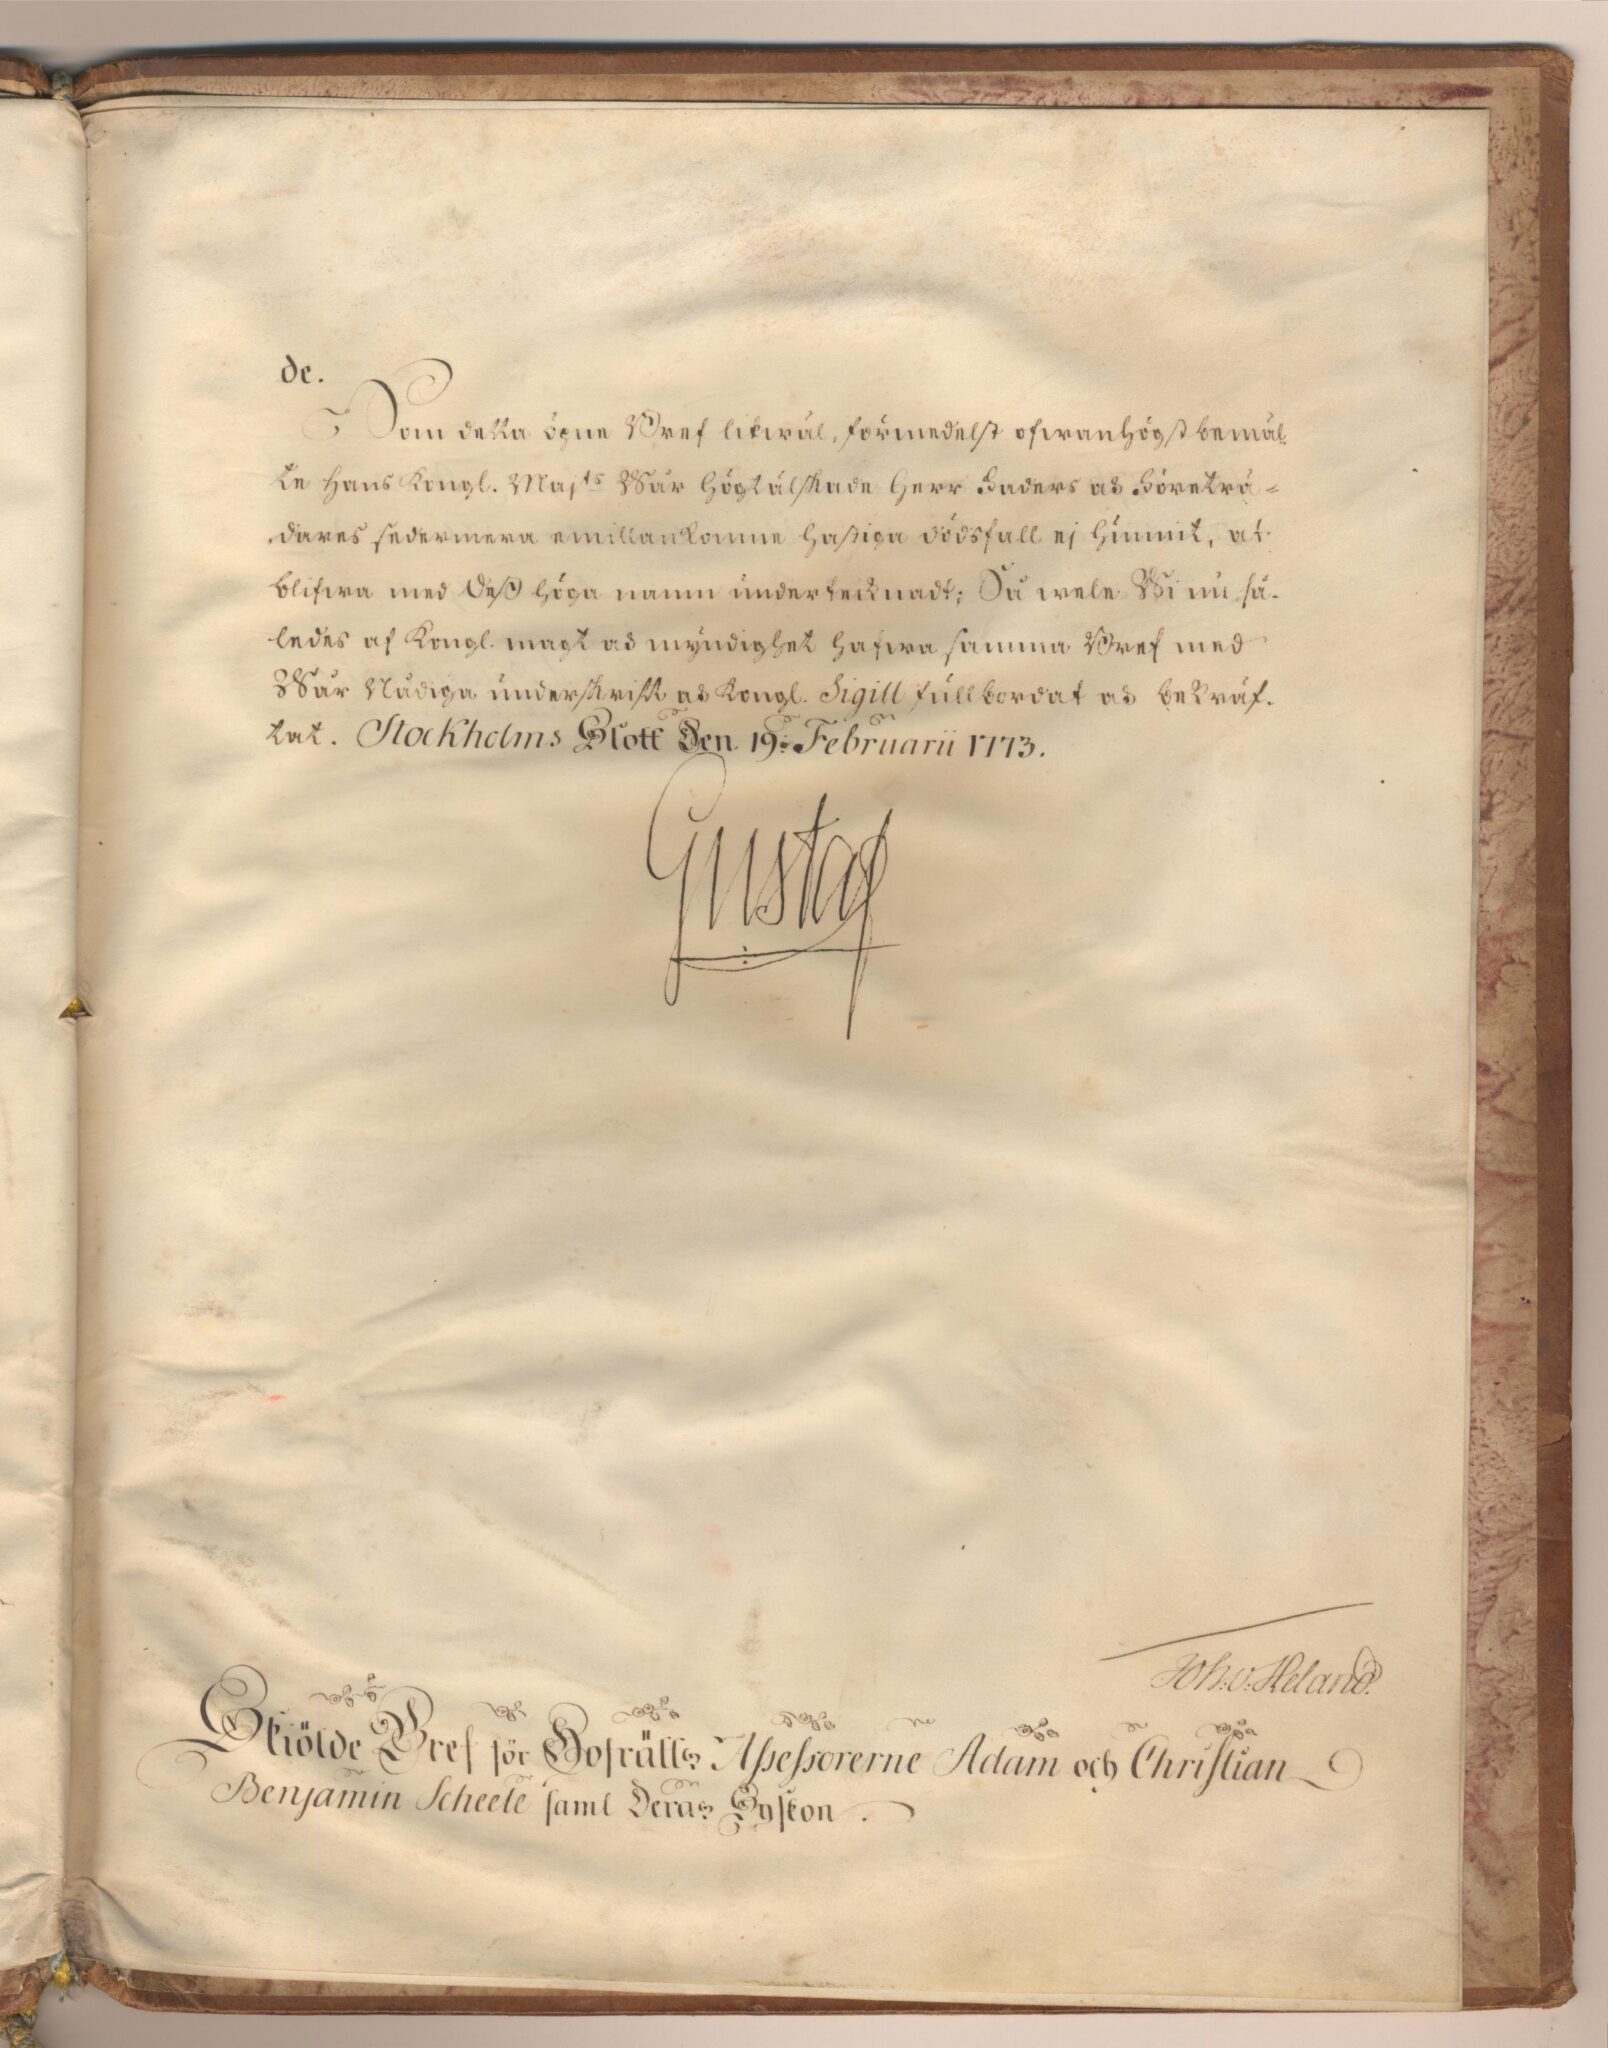 de.
Som detta öpne Bref likwäl, förmedelst ofwanhögstbemäl-
te Hans Kongl. Maj:ts Wår Högtälskade Herr Faders och Företrä-
dares sedermera emillankomne hastiga dödsfall ej hunnit, at
blifwa med Deß höga namn undertecknadt; Så wele Wi nu så-
ledes af Kongl. magt och myndighet hafwa samma Bref med
Wår Nådiga underskrift och Kongl. Sigill fullbordat och bekräf-
tat. Stockholms Slott Den 19. Februarii 1773.
Gustaf
Joh. v. Heland.
Skiölde Bref för Hofrätts Assessorerne Adam och Christian
Benjamin Scheele samt Deras Syskon.